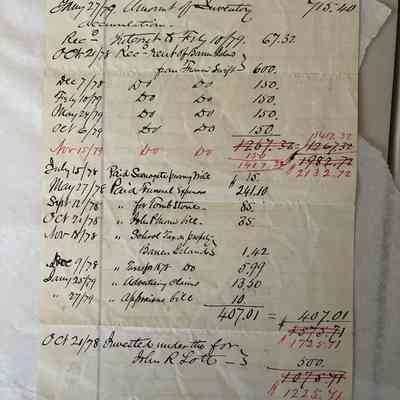 May 27/79 Amount of Inventory 715.40
Accumulation.
Rec^d Interest to Feby 10/79. 67.32
Oct 21/78 Rec^d rent of
from Francis Swift 600.
Dec 7/78 Do Do 150.
Feby 10/79 Do Do 150.
May 24/79 Do Do 150.
Oct 6/79 Do Do 150. 1417.32
Nov 15/79 Do Do 1267.32 1267.32
150 1982.72
1417.32 $ 2132.72
July 15/78 Paid Surrogate bill $ 15.
May 27/78 Paid Funeral Expenses 241.10
Sept 12/78 " for Tomb Stone 85.
Oct 21/78 " bill. 35.
Nov 18/78 " School Tax on property
Island 1.42
Dec 9/78 " Taxes Do 5.99
Jany 25/79 " Advertising claims 13.50
" 27/79 " Appraisers bill 10.
407.01 = 407.01
1575.71
1725.71
Oct 21/78 Invested under the for
John R Lott 500.
$ 1075.71
1225.71